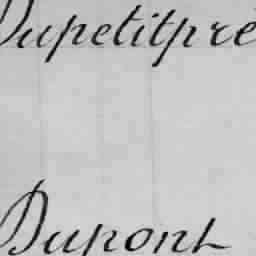 Dupetitpré
Dupont